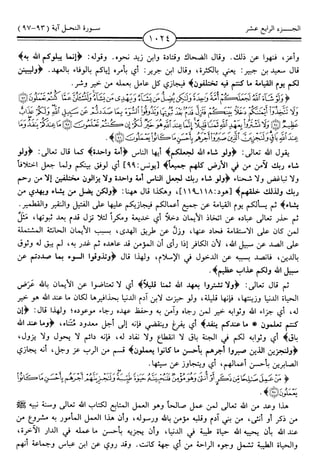 الجزء الرابع عشر
١٠٢٤
سورة النحل آية (٩٣-٩٧)
وأعز، فنهوا عن ذلك. وقال الضحاك وقتادة وابن زيد نحوه. وقوله: ﴿إنما يبلوكم الله به﴾
قال سعيد بن جبير: يعني بالكثرة، وقال ابن جرير: أي بأمره إياكم بالوفاء بالعهد. ﴿وليبينن
لكم يوم القيامة ما كنتم فيه تختلفون﴾ فيجازي كل عامل بعمله من خير وشر.
﴿وَلَوْ شَاءَ اللَّهُ لَجَعَلَكُمْ أُمَّةً وَاحِدَةً وَلَكِنْ يُضِلُّ مَنْ يَشَاءُ وَيَهْدِي مَنْ يَشَاءُ وَلَتُسْأَلُنَّ عَمَّا كُنْتُمْ تَعْمَلُونَ
وَلَا تَتَّخِذُوا أَيْمَانَكُمْ دَخَلًا بَيْنَكُمْ فَتَزِلَّ قَدَمٌ بَعْدَ ثُبُوتِهَا وَتَذُوقُوا السُّوءَ بِمَا صَدَدْتُمْ عَنْ سَبِيلِ اللَّهِ وَلَكُمْ عَذَابٌ
عَظِيمٌ وَلَا تَشْتَرُوا بِعَهْدِ اللَّهِ ثَمَنًا قَلِيلًا إِنَّمَا عِنْدَ اللَّهِ هُوَ خَيْرٌ لَكُمْ إِنْ كُنْتُمْ تَعْلَمُونَ مَا عِنْدَكُمْ يَنْفَدُ وَمَا
عِنْدَ اللَّهِ بَاقٍ وَلَنَجْزِيَنَّ الَّذِينَ صَبَرُوا أَجْرَهُمْ بِأَحْسَنِ مَا كَانُوا يَعْمَلُونَ﴾
يقول الله تعالى: ﴿ولو شاء الله لجعلكم﴾ أيها الناس ﴿أمة واحدة﴾ كما قال تعالى: ﴿ولو
شاء ربك لآمن من في الأرض كلهم جميعاً﴾ [يونس: ٩٩] أي لوفق بينكم ولما جعل اختلافاً
ولا تباغض ولا شحناء، ﴿ولو شاء ربك لجعل الناس أمة واحدة ولا يزالون مختلفين إلا من رحم
ربك ولذلك خلقهم﴾ [هود: ١١٨_١١٩]، وهكذا قال ههنا: ﴿ولكن يضل من يشاء ويهدي من
يشاء﴾ ثم يسألكم يوم القيامة عن جميع أعمالكم فيجازيكم عليها على الفتيل والنقير والقطمير.
ثم حذر تعالى عباده عن اتخاذ الأيمان دخلاً أي خديعة ومكراً لئلا تزل قدم بعد ثبوتها، مَثَلٌ
لمن كان على الاستقامة فحاد عنها، وزلّ عن طريق الهدى، بسبب الأيمان الحانثة المشتملة
على الصد عن سبيل الله، لأن الكافر إذا رأى أن المؤمن قد عاهده ثم غدر به، لم يبق له وثوق
بالدين، فانصد بسببه عن الدخول في الإسلام، ولهذا قال ﴿وتذوقوا السوء بما صددتم عن
سبيل الله ولكم عذاب عظيم﴾.
ثم قال تعالى: ﴿ولا تشتروا بعهد الله ثمناً قليلاً﴾ أي لا تعتاضوا عن الأيمان بالله عَرَض
الحياة الدنيا وزينتها، فإنها قليلة، ولو حيزت لابن آدم الدنيا بحذافيرها لكان ما عند الله هو خير
له، أي جزاء الله وثوابه خير لمن رجاه وآمن به وحفظ عهده رجاء موعوده؛ ولهذا قال: ﴿إن
كنتم تعلمون * ما عندكم ينفد﴾ أي يفرغ وينقضي فإنه إلى أجل معدود مُتناه، ﴿وما عند الله
باق﴾ أي وثوابه لكم في الجنة باق لا انقطاع ولا نفاد له، فإنه دائم لا يحول ولا يزول،
﴿ولنجزين الذين صبروا أجرهم بأحسن ما كانوا يعملون﴾ قسم من الرب عز وجل، أنه يجازي
الصابرين بأحسن أعمالهم، أي ويتجاوز عن سيئها.
﴿مَنْ عَمِلَ صَالِحًا مِنْ ذَكَرٍ أَوْ أُنْثَى وَهُوَ مُؤْمِنٌ فَلَنُحْيِيَنَّهُ حَيَاةً طَيِّبَةً وَلَنَجْزِيَنَّهُمْ أَجْرَهُمْ بِأَحْسَنِ مَا كَانُوا
يَعْمَلُونَ﴾
هذا وعد من الله تعالى لمن عمل صالحاً وهو العمل المتابع لكتاب الله تعالى وسنة نبيه ﷺ
من ذكر أو أنثى، من بني آدم وقلبه مؤمن بالله ورسوله، وأن هذا العمل المأمور به مشروع من
عند الله بأن يحييه الله حياة طيبة في الدنيا، وأن يجزيه بأحسن ما عمله في الدار الآخرة،
والحياة الطيبة تشمل وجوه الراحة من أي جهة كانت. وقد روي عن ابن عباس وجماعة أنهم